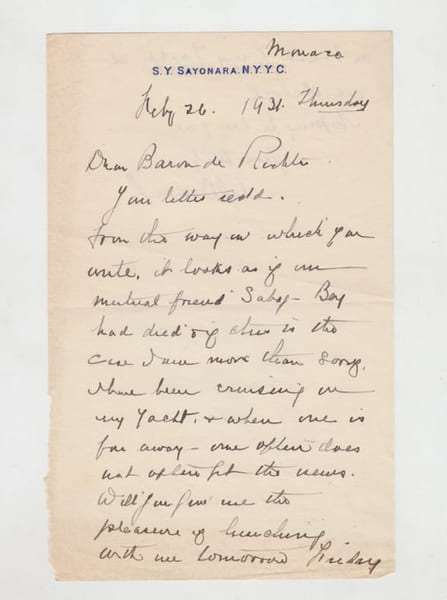 Monaco
S.Y. SAYONARA. N.Y.Y.C.
Feby 26. 1931. Thursday
Dear Baron de
Your letter recd.
From the way in which you
write, it looks as if our
mutual friend Bey
had died & if this is the
case I am more than sorry.
I have been cruising on
my Yacht, & when one is
far away - one often does
not often get the news.
Will you give me the
pleasure of lunching
with me tomorrow Friday